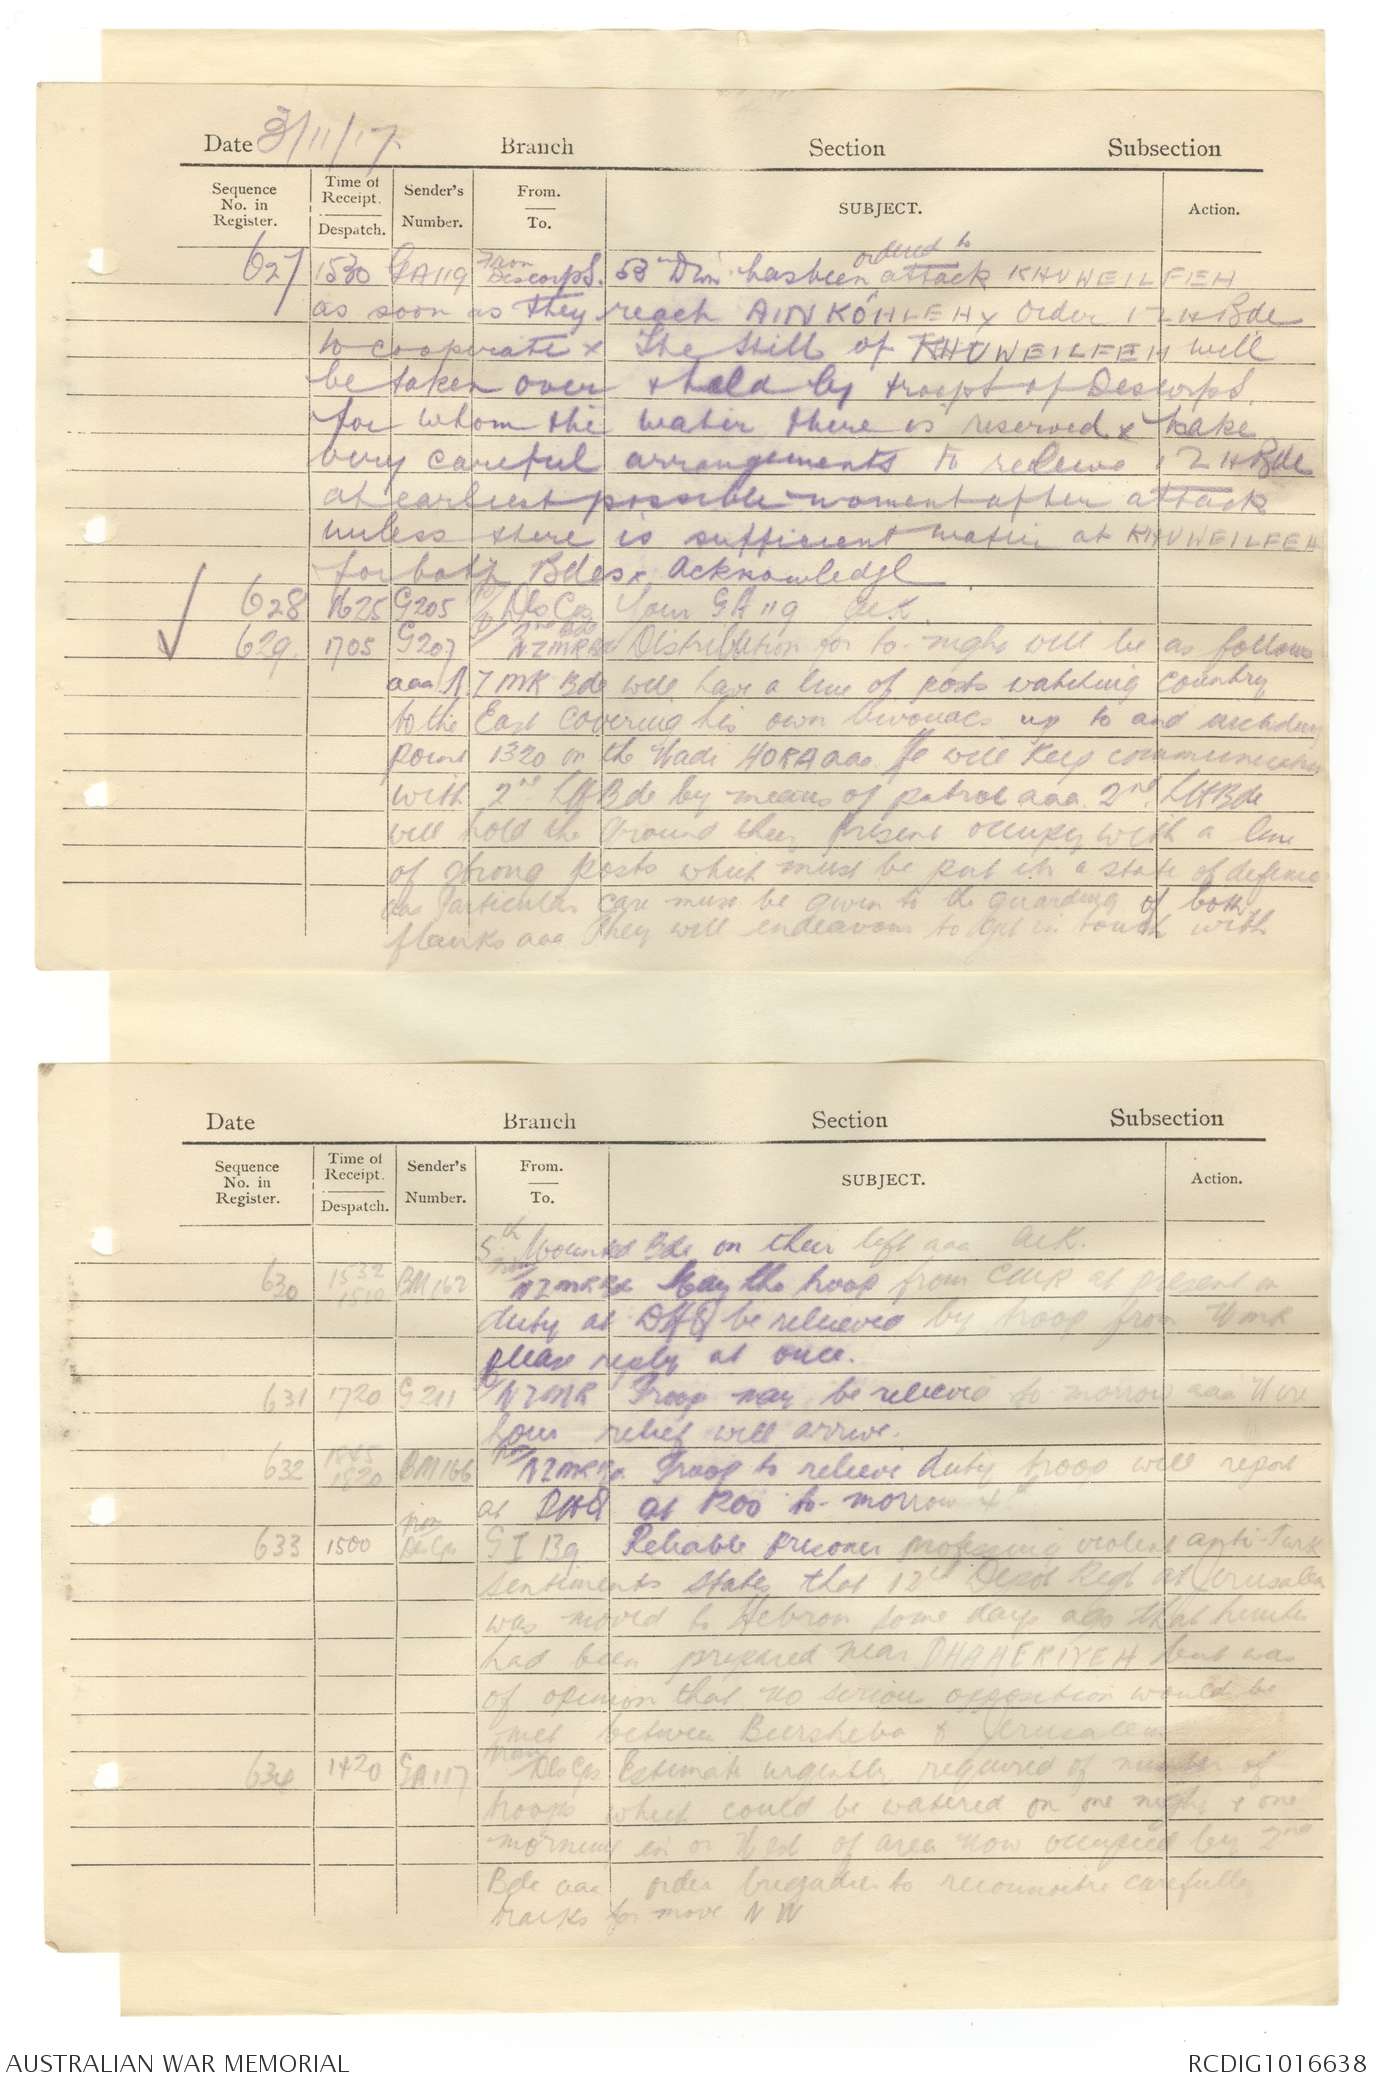 Date 3/11/17. Branch Section Subsection
Sequence No. in Register. Time of Receipt. Despatch. Sender's Number. From. To. SUBJECT. Action.
627 1530 GA119 From Descorps. 53rd Divn has been ordered to attack KHUWEILFEH
as soon as they reach AIN KOHLEH x Order 12 LH Bde
to cooperate x The Hills of KHUWEILFEH will
be taken over & held by troops of Descorps.
for whom the water there is reserved x take
very careful arrangements to relieve 12 LH Bde
at earliest possible moment after attack
unless there is sufficient water at KHUWEILFEH
for both Bdes x. Acknowledge
628 1625 G205 To Des Cps Your GA119 ack.
629. 1705 G207 To 2nd Bde NZMR Bde Distribution for to-night will be as follows
aaa NZMR Bde will have a line of posts watching country
to the East covering his own bivouacs up to and including
point 1320 on the Wadi HORA aaa He will keep communication
with 2nd LH Bde by means of patrol aaa 2nd LH Bde
will hold the ground they present occupy with a line
of strong posts which must be put in a state of defence
aaa Particular care must be given to the guarding of both
flanks aaa They will endeavour to get in touch with
Date Branch Section Subsection
Sequence No. in Register. Time of Receipt. Despatch. Sender's Number. From. To. SUBJECT. Action.
5th Mounted Bde on their left aaa Ack.
630 1532 1510 BM162 From NZMR Bde May the troop from CMR at present on
duty at DHQ be relieved by troop from WMR
please reply at once.
631 1720 G211 To NZMR Troop may be relieved to morrow aaa Wire
hour relief will arrive.
632 1845 1820 BM166 From NZMR Bde Troop to relieve duty troop will report
at DHQ at 1200 to-morrow x
633 1500 From Des Cps GI 139 Reliable prisoner professing violent anti-Turk
sentiments states that 12th Depot Regt at Jerusalem
was moved to Hebron some days ago that trenches
had been prepared near DHAHERIYEH but was
of opinion that no serious opposition would be
met between Beersheba & Jerusalem
634 1420 GA117 From Des Cps Estimate urgently required of number of
troops which could be watered on one night & one
morning in or West of area now occupied by 2nd
Bde aaa order brigades to reconnoitre carefully
tracks for move N W
AUSTRALIAN WAR MEMORIAL RCDIG1016638